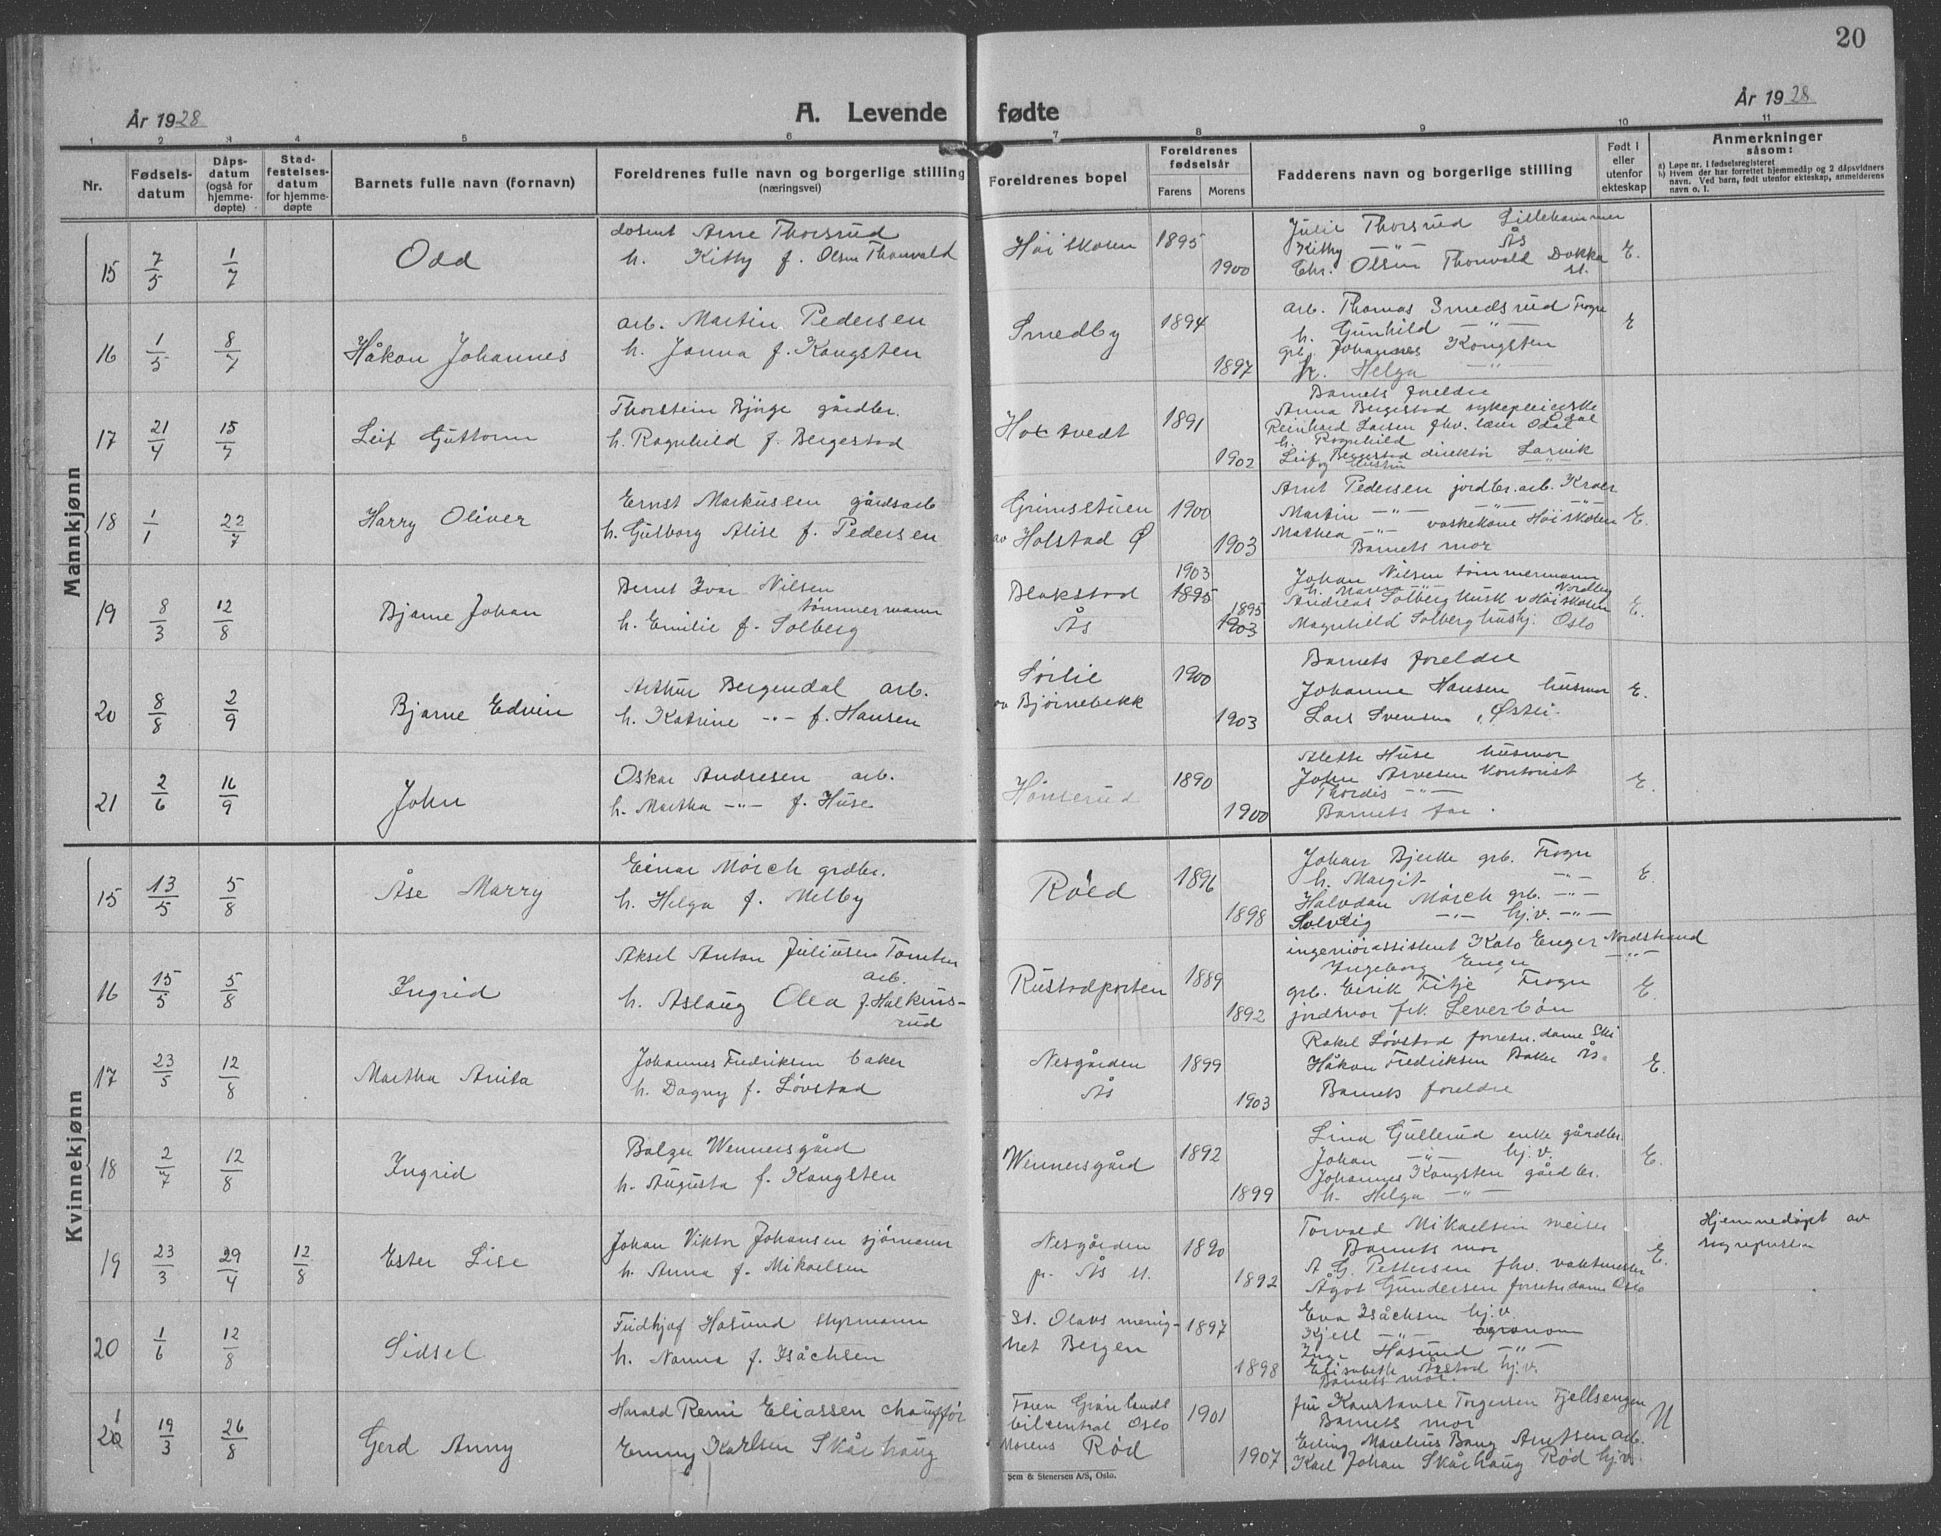 20
År 1928
A. Levende fødte
År 1928
1 2 3 4 5 6 7 8 9 10 11
Nr.
Fødsels-
datum
Dåps-
datum
(også for
hjemme-
døpte)
Stad-
festelses-
datum
for hjemme-
døpte
Barnets fulle navn (fornavn)
Foreldrenes fulle navn og borgerlige stilling
(næringsvei)
Foreldrenes bopel
Foreldrenes
fødselsår
Farens Morens
Fadderens navn og borgerlige stilling
Født i
eller
utenfor
ekteskap
Anmerkninger
såsom:
a) Løpe nr. i fødselsregisteret
b) Hvem der har forrettet hjemmedåp og 2 dåpsvidners
navn. Ved barn, født utenfor ekteskap, anmelderens
navn o. l.
Mannkjønn
15 7/5 1/7 Odd
dosent Arne Thorsrud
h. Kitty f. Olsen Thonvald
Høiskolen 1895 1900
Julie Thorsrud Lillehammer
Kitty -"- Ås
Chr. Olsen Thonvald Dokka
st.
E.
16 1/5 8/7 Håkon Johannes
arb. Martin Pedersen
h. Janna f. Kongsten
Smedby 1894 1897
arb. Thomas Smedsrud Frogn
h. Gunhild -"-
grb. Johannes Kongsten
h. Helga -"-
E
17 21/4 15/7 Leif Guttorm
Thorstein Bjørge gårdbr.
h. Ragnhild f. Bergestad
Holstvedt 1891 1902
Barnets foreldre
Anna Bergestad sykepleierske
Reinhard Larsen fhv. lærer Odal
h. Ragnhild Odal
Leif Bergestad direktør Larvik
og hustru -"-
18 1/1 22/7 Harry Oliver
Ernst Markussen gårdsarb
h. Gulborg Alise f. Pedersen
Grimsstuen
av Holstad Ø 1900 1903
Arnt Pedersen jordbr. arb. Kroer
Martin -"- -"-
Mathea -"- vaskekone Høiskolen
Barnets mor
E.
19 8/3 12/8 Bjarne Johan
Bernt Ivar Nilsen
tømmermann
h. Emilie f. Solberg
Blakstad
Ås
1903
1895
1895
1903
Johan Nilsen tømmermann
h. Maren -"- Nordby
Andreas Solberg kusk v Høiskolen
Magnhild Solberg hushj. Oslo
E.
20 8/8 2/9 Bjarne Edvin
Arthur Bergendal arb.
h. Katrine -"- f. Hansen
Sørlie
av Bjørnebekk 1900 1903
Barnets foreldre
Johanne Hansen husmor
Lars Svensen
E.
21 2/6 16/9 John
Oskar Andresen arb.
h. Martha -"- f. Huse
Hønserud 1890 1900
Alette Huse husmor
John Arvesen kontorist
Thordis -"-
Barnets far.
E.
Kvinnekjønn
15 13/5 5/8 Åse Marry
Einar Mørch grdbr.
h. Helga f. Melby
Røed 1896 1898
Johan Bjerke grb. Frogn
h. Margit -"-
Halvdan Mørch grb. -"-
Solveig -"- hj.v. -"-
E.
16 15/5 5/8 Ingrid
Aksel Anton Juliussen Tomten
arb.
h. Aslaug Olea f. Halkins-
rud
Rustadporten 1889 1892
ingeniørassistent Kato Enger Nordstrand
Ingeborg Enger -"-
grb. Eirik Fitje Frogn
jordmor frk. Leverbøn
E.
17 23/5 12/8 Martha Anita
Johannes Fredriksen baker
h. Dagny f. Løvstad
Nesgården
Ås 1899 1903
Rakel Løvstad forretn.dame Ski
Håkon Fredriksen Baker Ås.
Barnets foreldre
E.
18 2/7 12/8 Ingrid
Balzer Wennersgård
h. Augusta f. Kongsten
Wennersgård 1892 1899
Lina Gullerud enke gårdbr.
Johan -"- hj.v.
Johannes Kongsten gårdbr.
h. Helga -"-
E.
19 23/3 29/4 12/8 Ester Lise
Johan Viktor Johansen sjømann
h. Anna f. Mikaelsen
Nesgården
pr. Ås st. 1890 1892
Torvald Mikaelsen sveiser
Barnets mor
A G. Pettersen fhv. vaktmester
Ågot Gundersen forretn.dame Oslo
E.
Hjemmedøpt av
sognepresten
20 1/6 12/8 Sidsel
Fridtjof Hasund styrmann
h. Nanna f. Isåchsen
St. Olavs menig-
het Bergen 1897 1898
Eva Isåchsen hj.v.
Kjell -"- agronom
Inge Hasund -"-
Elisabeth Åsstad hj.v.
Barnets mor.
21 19/3 26/8 Gerd Anny
Harald Remi Eliassen chauffør
Emmy Karlsen Skårhaug
Faren Grønlands
bilcentral Oslo
Morens Rød 1901 1907
fru Konstanse Torgersen Fjellsengen
Barnets mor
Erling Marelius Bang Arntsen arb.
Karl Johan Skårhaug Rød hj.v.
U
Sem & Stenersen A/S, Oslo.